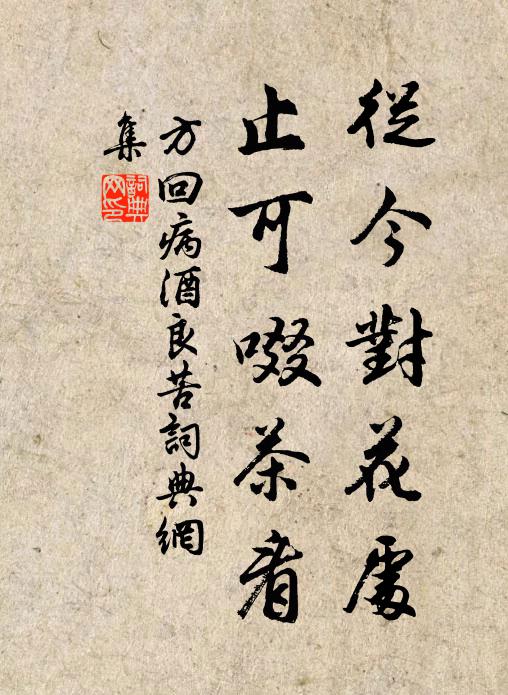 從今對花處
止可啜茶看
方回病酒良苦詞典網
集
詞典
网印